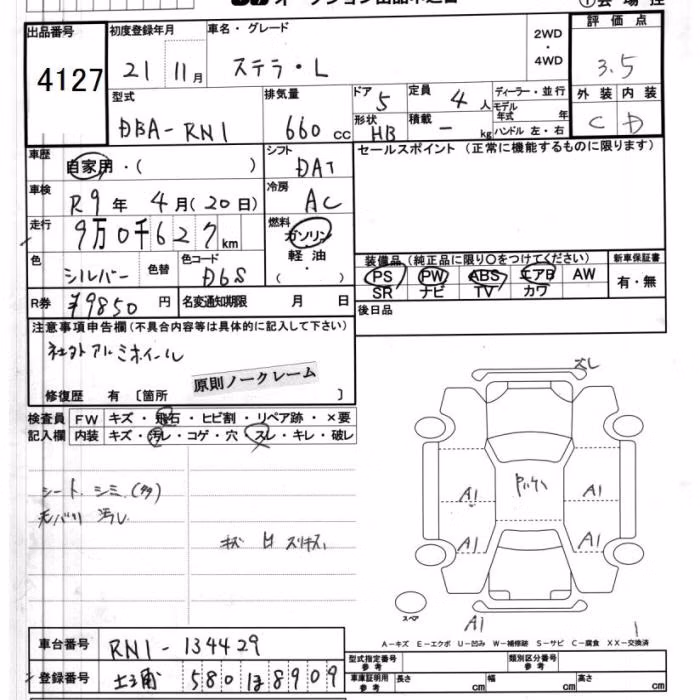 オークション出品申込書
出品番号 初度登録年月 車名・グレード 2WD・4WD 評価点
4127 21 11月 ステラ・L 3.5
型式 排気量 ドア 5 定員 4人 ディーラー・並行 外装 内装
DBA-RN1 660cc 形状 HB 積載 - kg モデル年式 年 C D
ハンドル 左・右
車歴 自家用・( ) シフト DAT セールスポイント (正常に機能するものに限ります)
車検 R9年 4月(20日) 冷房 AC
走行 9万0千627km 燃料 ガソリン 軽油・( )
色 シルバー 色替 色コード D6S
装備品 (純正品に限り○をつけてください) 新車保証書
PS PW ABS エアB AW 有・無
SR ナビ TV カワ
R券 ¥9850円 名変通知期限 月 日 後日品
注意事項申告欄(不具合内容等は具体的に記入して下さい)
社外アルミホイール
原則ノークレーム
修復歴 有 [箇所 ]
検査員 FW キズ・飛石・ヒビ割・リペア跡・×要
記入欄 内装 キズ・汚レ・コゲ・穴・スレ・キレ・破レ
シート シミ(多)
キズ 凹 スリキズ
ズレ
A1 A1
A1 A1
スペア
A1
1
A-キズ E-エクボ U-凹み W-補修跡 S-サビ C-腐食 XX-交換済
車台番号 RN1-134429
登録番号 土浦 580
型式指定番号 参考 類別区分番号 参考
車庫証明用 参考 長さ cm 幅 cm 高さ cm